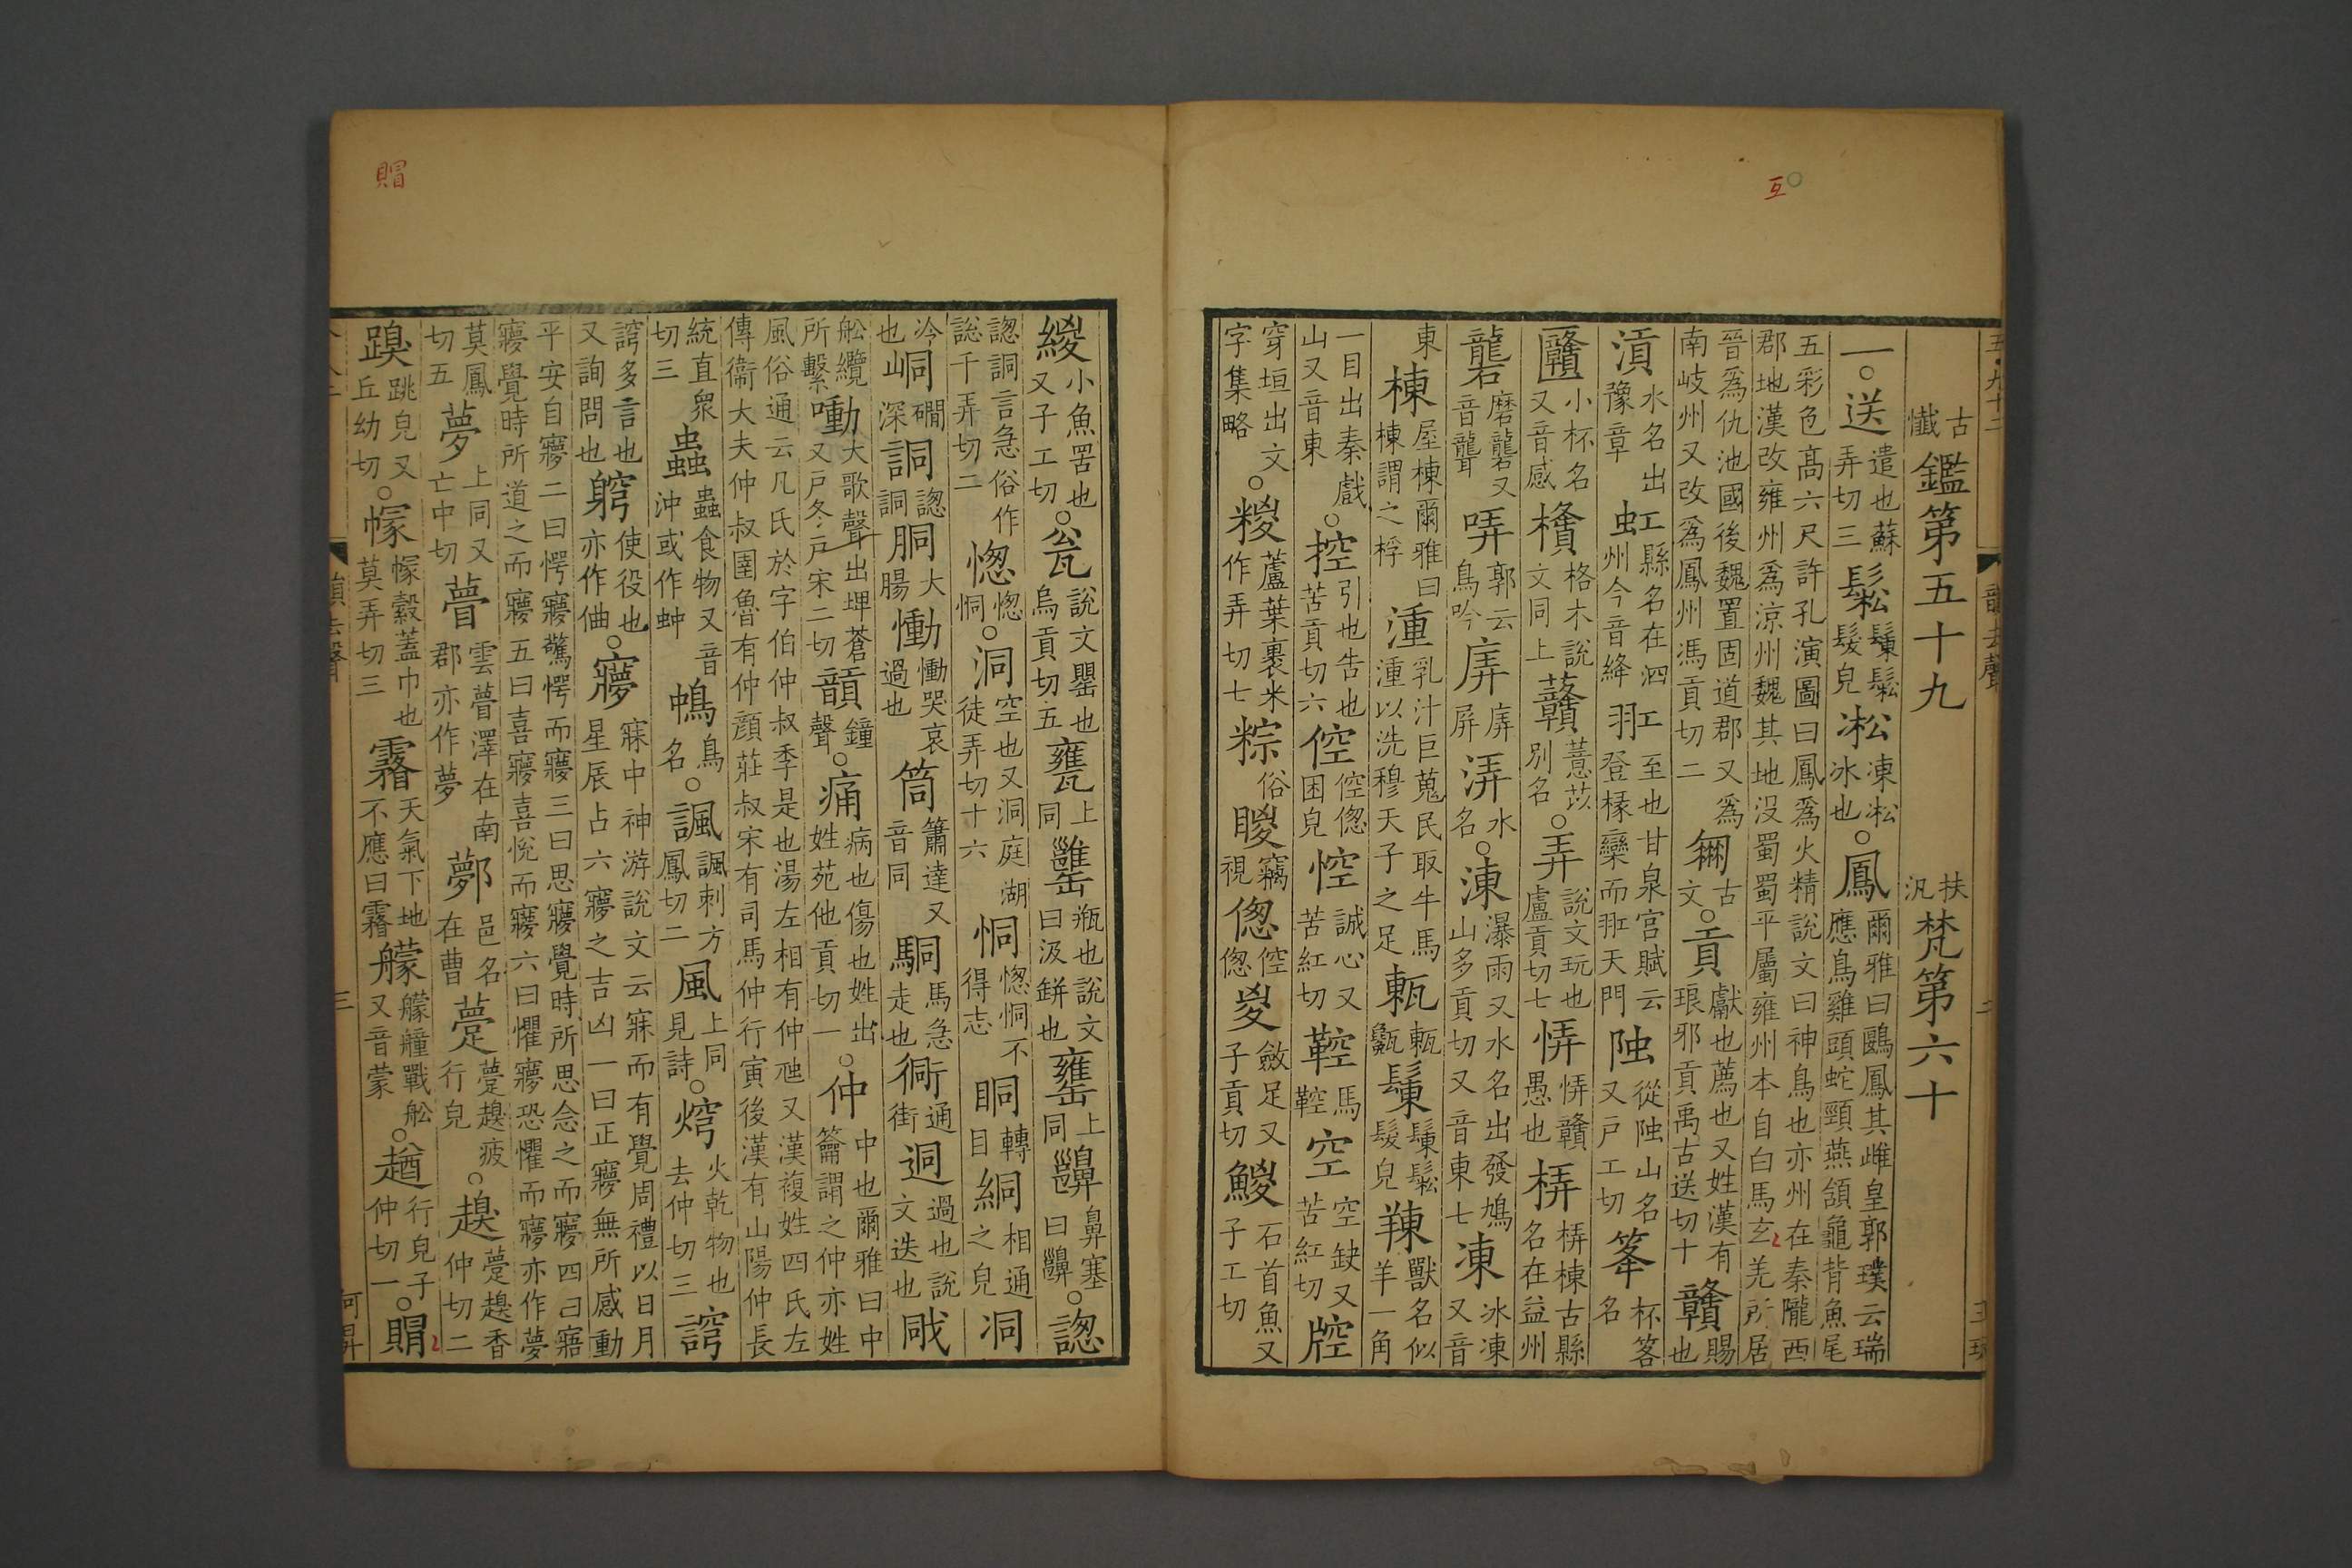 互
古懴鑑第五十九　扶汎梵第六十
一。送遣也蘇弄切三鬆鬆髮皃凇凍凇冰也。鳳爾雅曰鶠鳳其雌皇郭璞云瑞應鳥雞頭蛇頸燕頷龜背魚尾
五彩色高六尺許孔演圖曰鳳為火精說文曰神鳥也亦州在秦隴西郡地漢改雍州為涼州魏其地沒蜀蜀平屬雍州本自白馬玄羌所居
晉為仇池國後魏置固道郡又為南岐州又改為鳳州馮貢切二古文。貢獻也薦也又姓漢有琅邪貢禹古送切十贛賜也
湏水名出豫章虹虹縣名在泗州今音絳羾至也甘泉宮賦云登椽欒而羾天門䧆從䧆山名又戶工切篢杯笿名
小杯名又音感格木說文同上薏苡別名。弄說文玩也盧貢切七愚也梇梇棟古縣名在益州
礱磨礱又音聾哢郭云鳥吟屏㳥水名。涷瀑雨又水名出發鳩山多貢切又音東七凍冰凍又音
東棟屋棟爾雅曰棟謂之桴湩乳汁巨蒐民取牛馬湩以洗穆天子之足髮皃獸名似羊一角
一目出秦戲山又音東。控引也告也苦貢切六倥倥偬困皃悾誠心又苦紅切鞚馬鞚空空缺又苦紅切
穿垣出文字集略。糉蘆葉裹米作弄切七粽俗竊視傯倥傯斂足又子貢切鯼石首魚又子工切
緵小魚罟也又子工切。瓮說文罌也烏貢切五甕上同罋瓶也說文曰汲缾也上同齆鼻塞曰齆。謥
謥詷言急俗作謥千弄切二惚恫。洞空也又洞庭湖徒弄切十六恫惚恫不得志眮轉目絧相通之皃
冷也峒深詷謥詷胴大腸慟慟哭哀過也筒簫達又音同駧馬急走也衕通街迵過也說文迭也
舩纜所繫大歌聲又戶冬戶宋二切出埤蒼鐘聲。痛病也傷也姓出姓苑他貢切一。仲中也爾雅曰中籥謂之仲亦姓
風俗通云凡氏於字伯仲叔季是也湯左相有仲虺又漢複姓四氏左傳衞大夫仲叔圉魯有仲顏莊叔宋有司馬仲行寅後漢有山陽仲長
統直衆切三蟲蟲食物又音沖或作蚛鳥名。諷諷刺方鳳切二風上同見詩。焪火乾物也去仲切三
多言也又詢問也使役也亦作曲。㝱寐中神游說文云寐而有覺周禮以日月星辰占六㝱之吉凶一曰正㝱無所感動
平安自㝱二曰愕㝱驚愕而㝱三曰思㝱覺時所思念之而㝱四曰寤㝱覺時所道之而㝱五曰喜㝱喜悅而㝱六曰懼㝱恐懼而㝱亦作夢
莫鳳切五夢上同又亡中切瞢雲瞢澤在南郡亦作夢鄸邑名在曹疲行皃。香仲切二
跳皃又丘幼切。幏幏縠蓋巾也莫弄切三霿天氣下地不應曰霿艨艨艟戰舩又音蒙。行皃子仲切一。賵